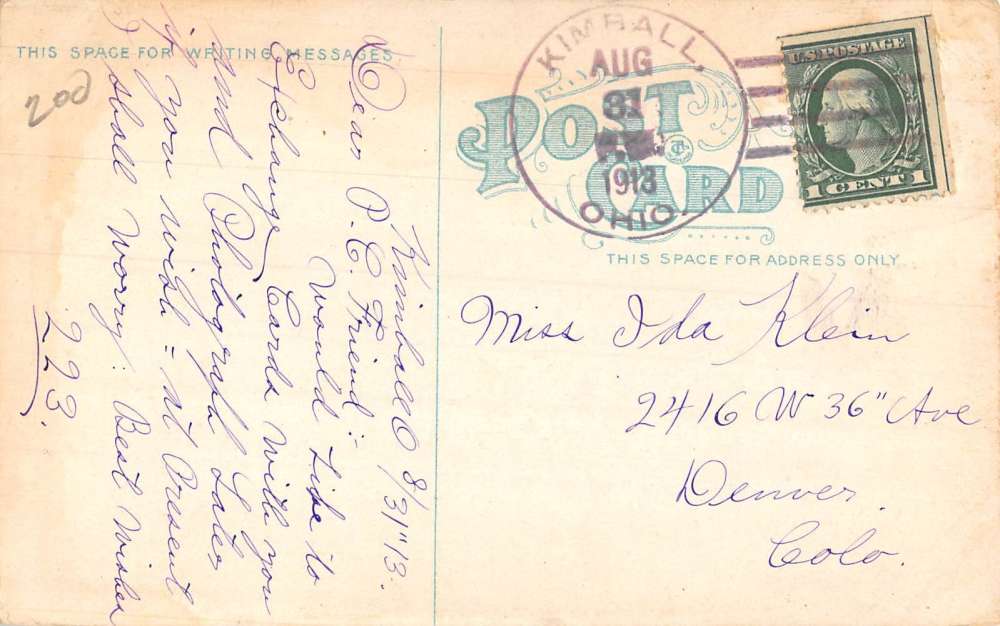 THIS SPACE FOR WRITING MESSAGES
200
Kimball O 8/31"13.
Dear P.C. Friend:
Would Like to
Exchange Cards with you
and Photograph Later
if you wish = At Present
I shall Worry. Best Wishes
223.
POST CARD
KIMBALL,
AUG
31
1913
OHIO.
U.S. POSTAGE
1 CENT 1
THIS SPACE FOR ADDRESS ONLY
Miss Ida Klein
2416 W 36" Ave
Denver
Colo.